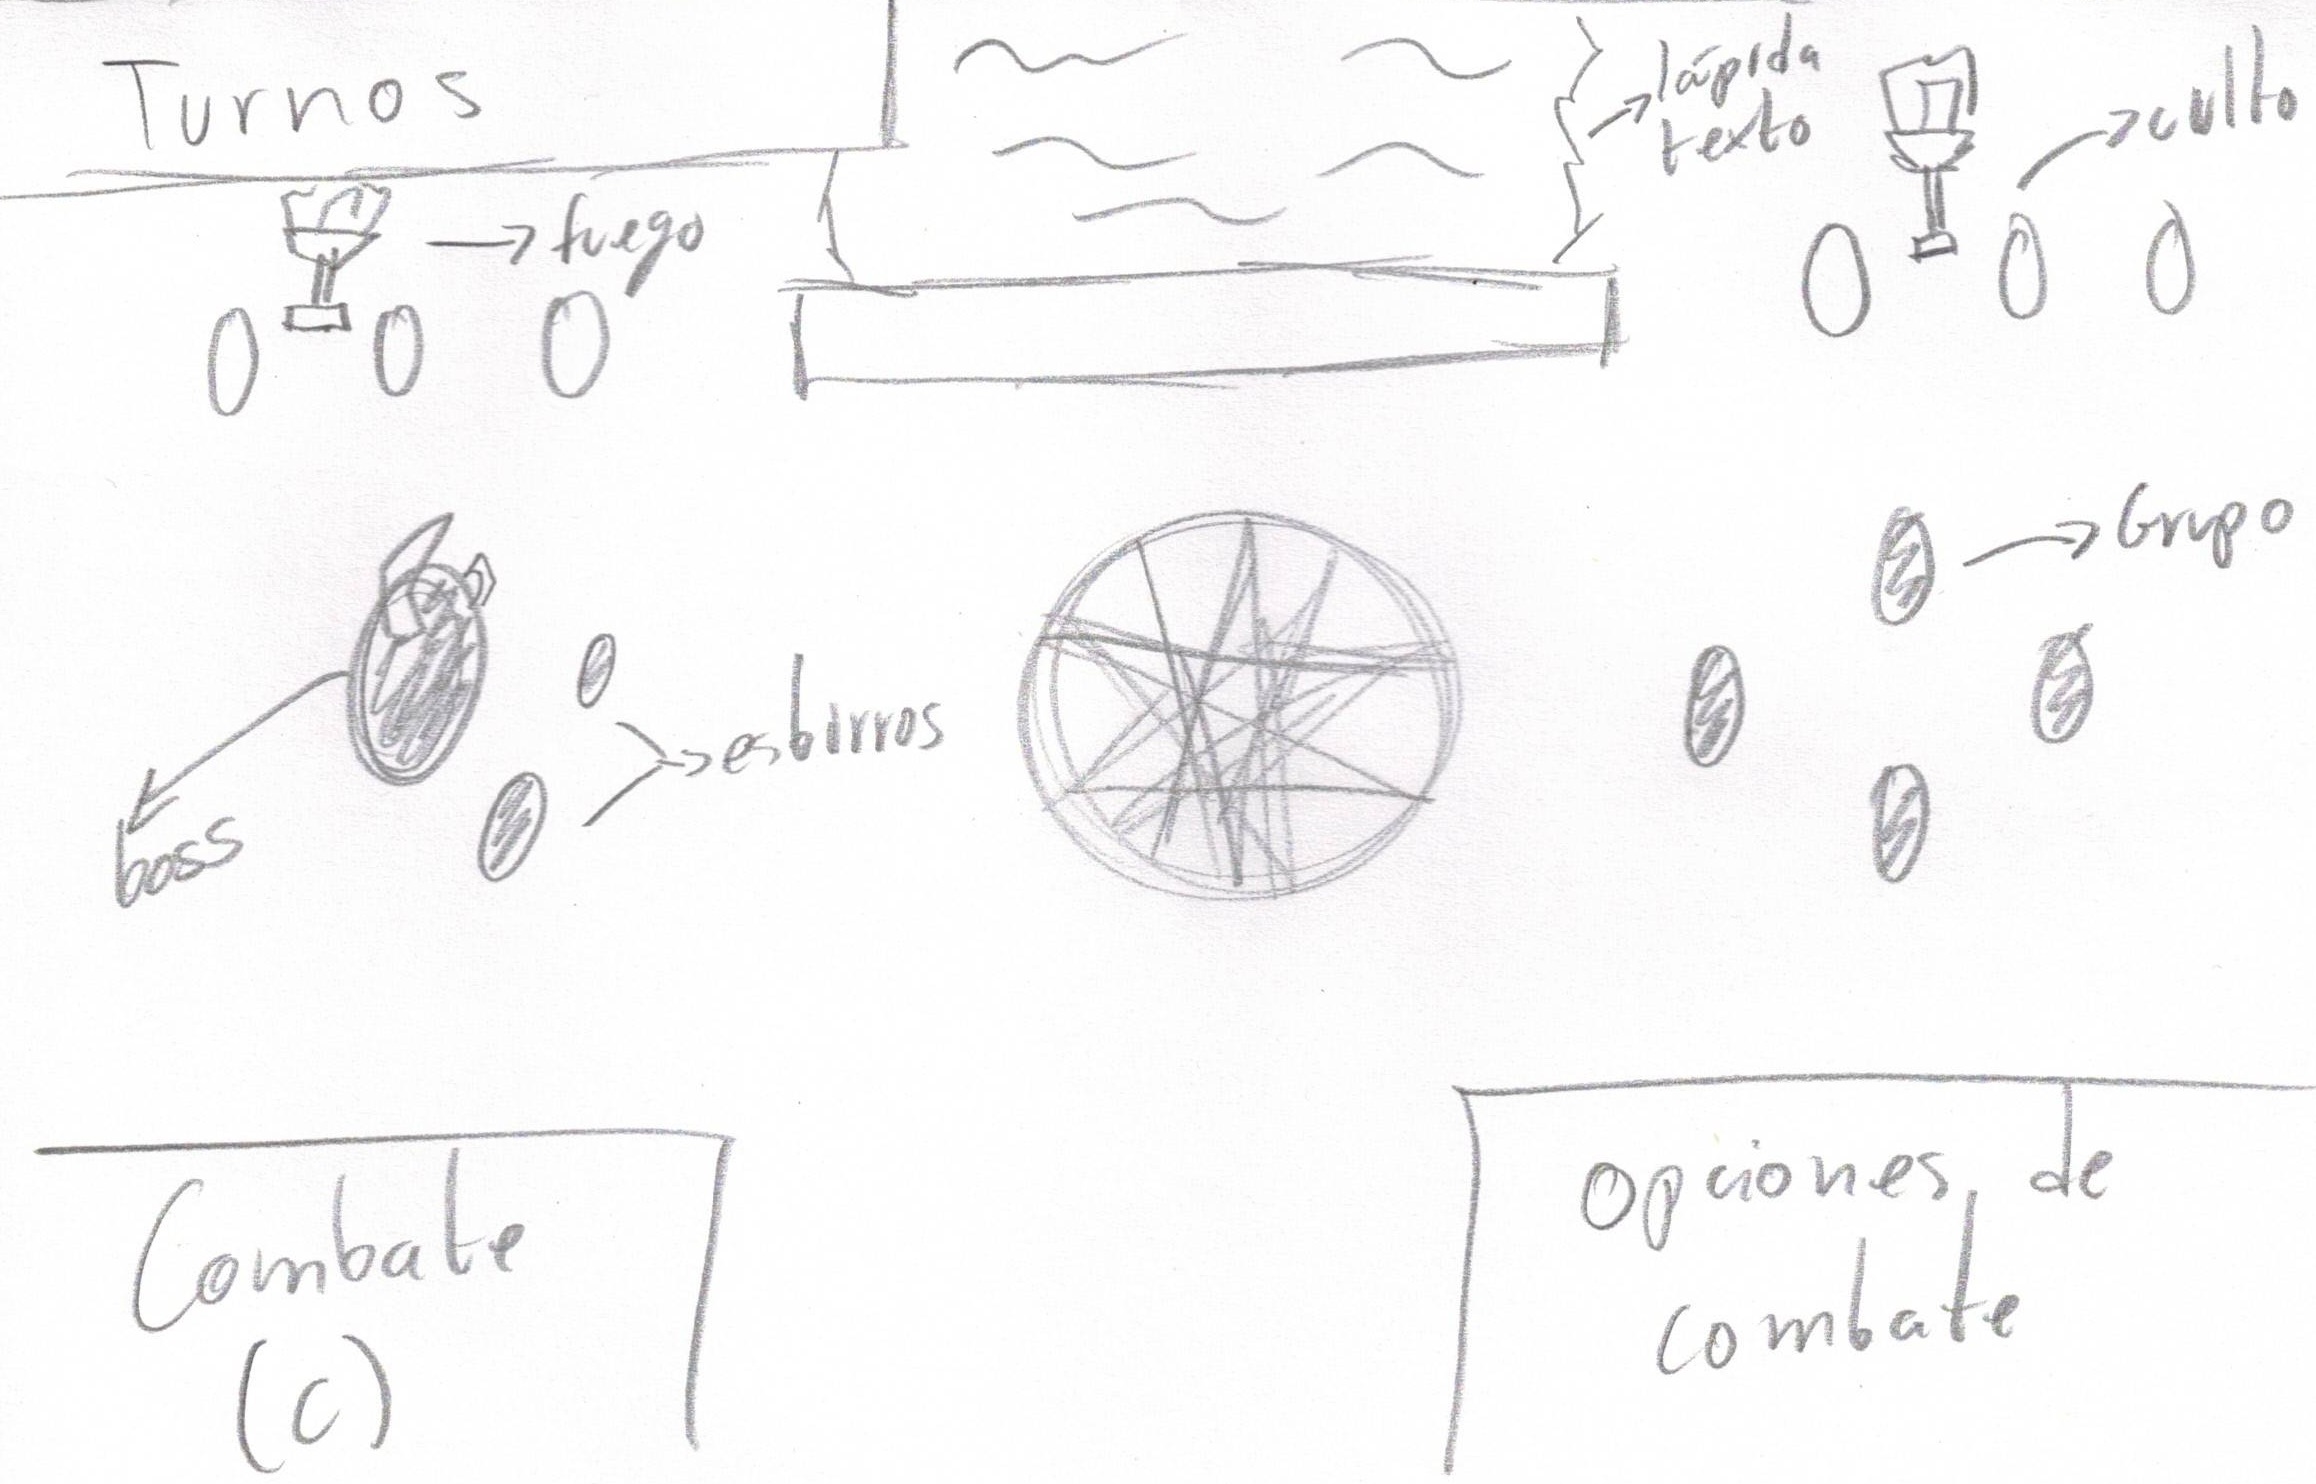 Turnos
lápida
texto
culto
fuego
Grupo
esbirros
boss
Combate
(c)
Opciones de
combate